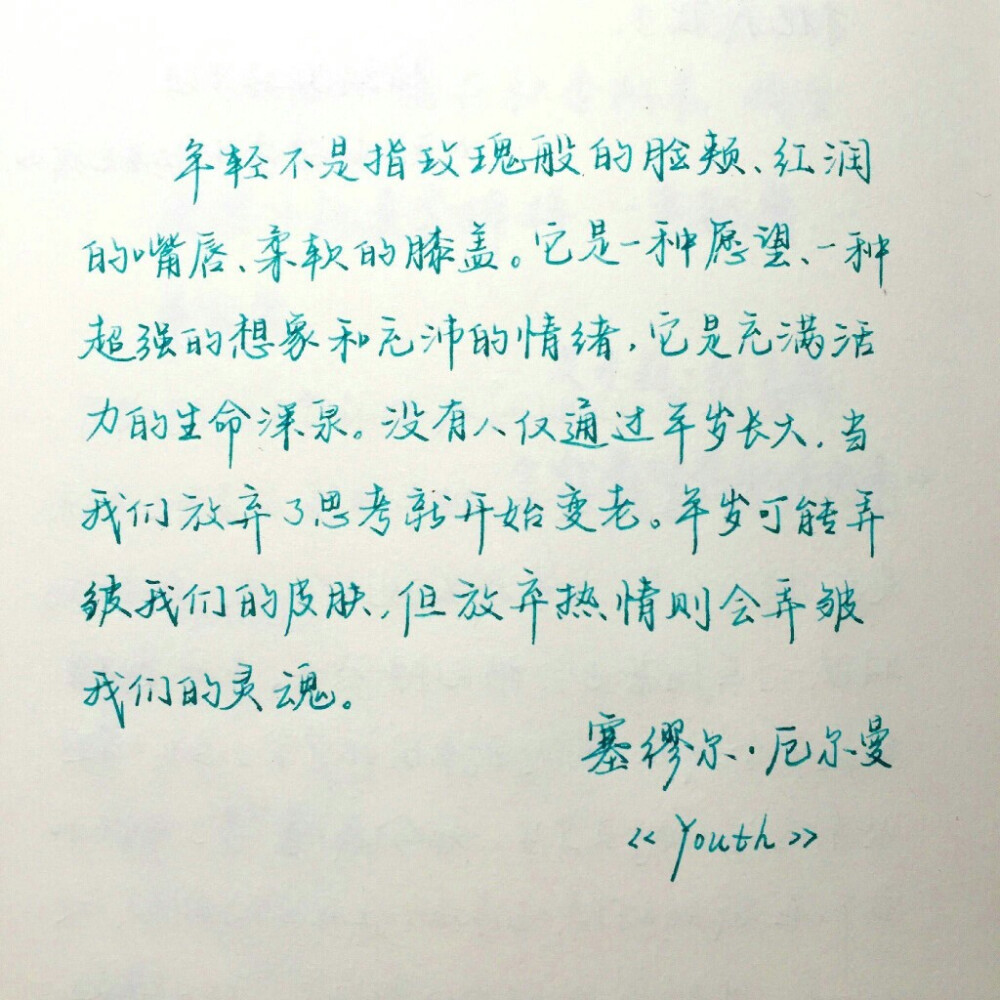 年轻不是指玫瑰般的脸颊、红润
的嘴唇、柔软的膝盖。它是一种愿望、一种
超强的想象和充沛的情绪,它是充满活
力的生命深泉。没有人仅通过年岁长大,当
我们放弃了思考就开始变老。年岁可能弄
皱我们的皮肤,但放弃热情则会弄皱
我们的灵魂。
塞缪尔·厄尔曼
《Youth》